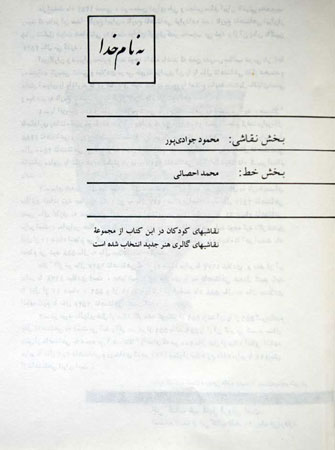 به نام خدا
بخش نقاشی: محمود جوادی‌پور
بخش خط: محمد احصائی
نقاشیهای کودکان در این کتاب از مجموعهٔ
نقاشیهای گالری هنر جدید انتخاب شده است